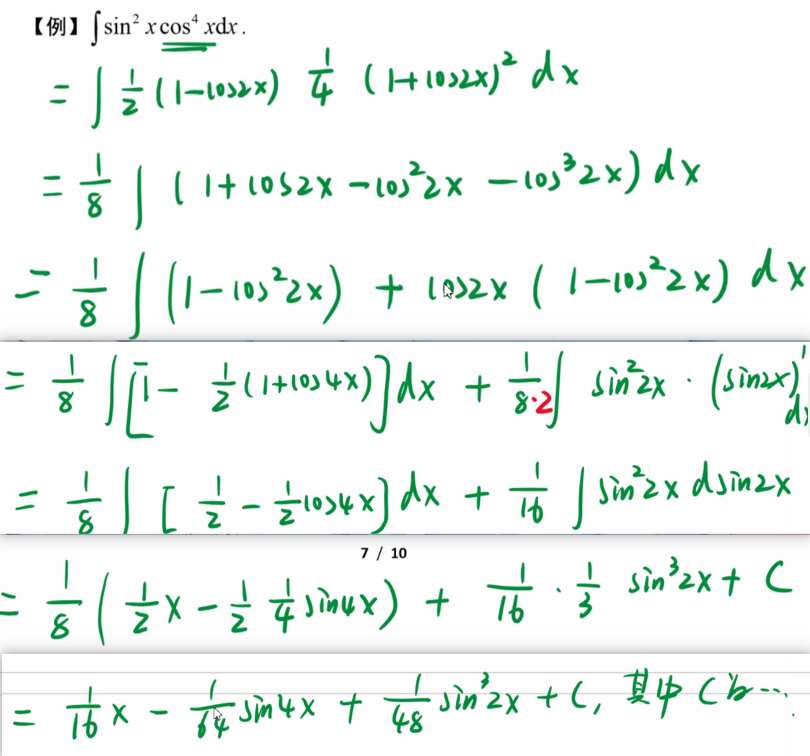 【例】∫sin² x cos⁴ xdx.
= ∫ 1/2 (1-cos2x) 1/4 (1+cos2x)² dx
= 1/8 ∫ (1+cos2x -cos²2x -cos³2x) dx
= 1/8 ∫ (1-cos²2x) + cos2x (1-cos²2x) dx
= 1/8 ∫[1- 1/2(1+cos4x)]dx + 1/8·2∫ sin²2x · (sin2x)' dx
= 1/8 ∫ [1/2 - 1/2cos4x]dx + 1/16 ∫ sin²2x dsin2x
7 / 10
= 1/8 (1/2x - 1/2 1/4 sin4x) + 1/16 · 1/3 sin³2x + C
= 1/16 x - 1/64 sin4x + 1/48 sin³2x + C, 其中C为….